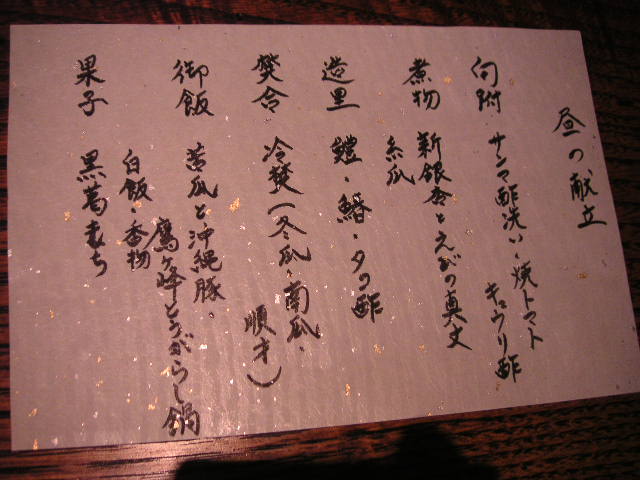 昼の献立
向附 サンマ酢洗い・焼トマト
キュウリ酢
煮物 新銀杏とえびの真丈
糸瓜
造里 鱧・鰆・タコ酢
焚合 冷焚（冬瓜・南瓜・
順才）
御飯 苦瓜と沖縄豚・
鷹ヶ峰とうがらし鍋
白飯・香物
果子 黒葛もち